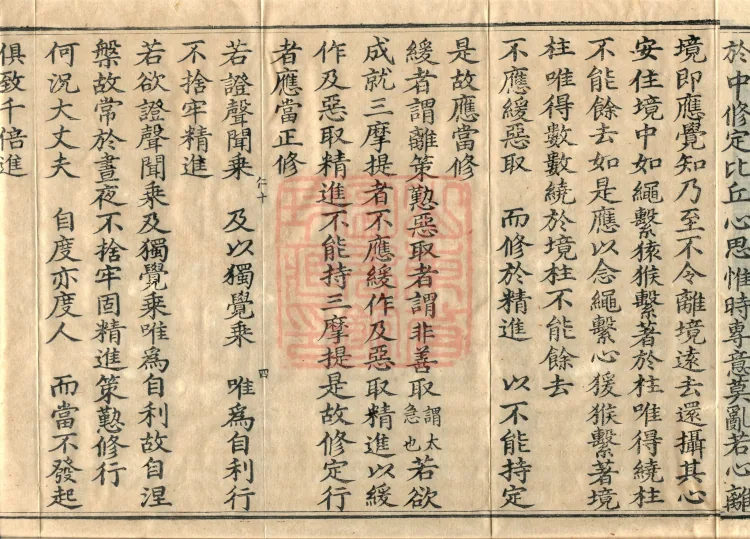 於中修定比丘心思惟時專意莫亂若心離
境即應覺知乃至不令離境遠去還攝其心
安住境中如繩繫猿猴繫著於柱唯得繞柱
不能餘去如是應以念繩繫心猨猴繫著境
柱唯得數數繞於境柱不能餘去
不應緩惡取 而修於精進 以不能持定
是故應當修
緩者謂離策懃惡取者謂非善取謂太急也若欲
成就三摩提者不應緩作及惡取精進以緩
作及惡取精進不能持三摩提是故修定行
者應當正修
仁十 四
若證聲聞乘 及以獨覺乘 唯為自利行
不捨牢精進
若欲證聲聞乘及獨覺乘唯為自利故自涅
槃故常於晝夜不捨牢固精進策懃修行
何況大丈夫 自度亦度人 而當不發起
俱致千倍進